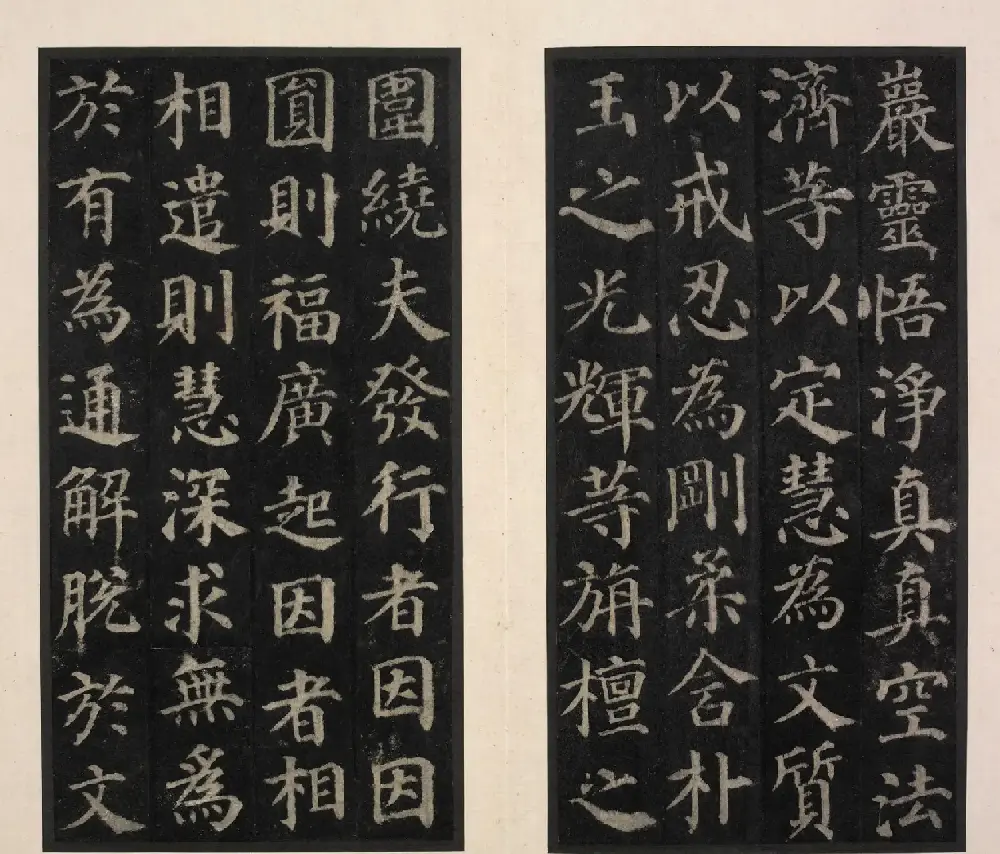 巖靈悟淨真真空法
濟等以定慧為文質
以戒忍為剛柔含朴
玉之光輝等旃檀之
圍繞夫發行者因因
圓則福廣起因者相
相遣則慧深求無為
於有為通解脫於文